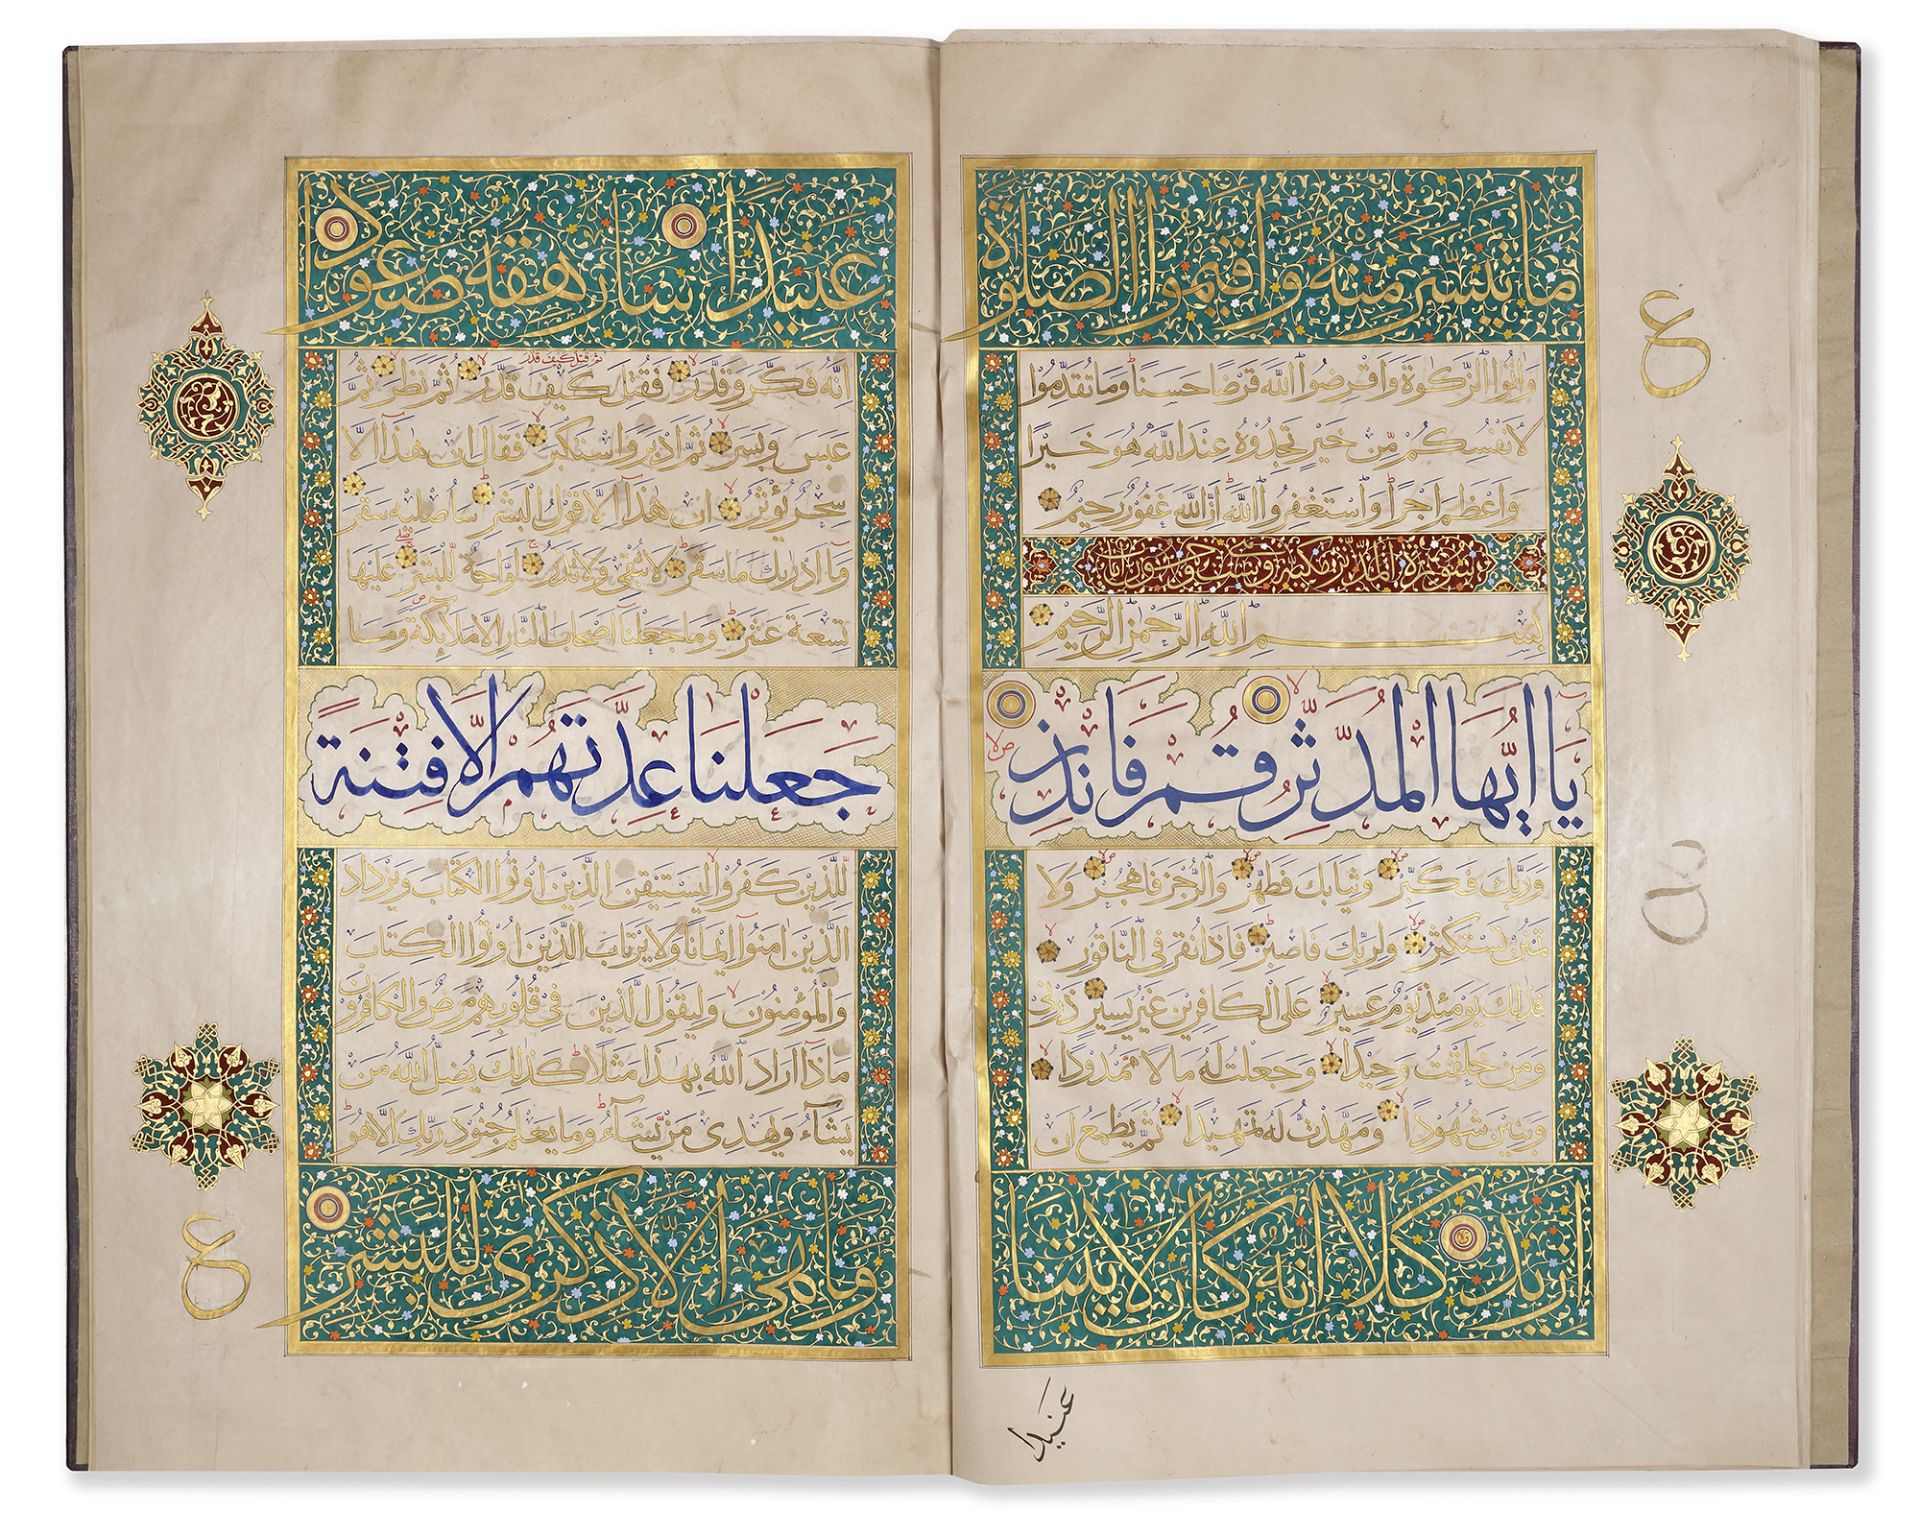 ما تيسر منه واقيموا الصلوة
واتوا الزكوة واقرضوا الله قرضا حسنا وما تقدموا
لانفسكم من خير تجدوه عند الله هو خيرا
واعظم اجرا واستغفروا الله ان الله غفور رحيم
سورة المدثر مكية
بسم الله الرحمن الرحيم
يا ايها المدثر قم فانذر
وربك فكبر وثيابك فطهر والرجز فاهجر ولا
تمنن تستكثر ولربك فاصبر فاذا نقر في الناقور
فذلك يومئذ يوم عسير على الكافرين غير يسير ذرني
ومن خلقت وحيدا وجعلت له مالا ممدودا
وبنين شهودا ومهدت له تمهيدا ثم يطمع ان
ازيد كلا انه كان لاياتنا
عنيدا
ع
عنيدا سارهقه صعودا
ثم قتل كيف قدر
انه فكر وقدر فقتل كيف قدر ثم نظر ثم
عبس وبسر ثم ادبر واستكبر فقال ان هذا الا
سحر يؤثر ان هذا الا قول البشر ساصليه سقر
وما ادريك ما سقر لا تبقي ولا تذر لواحة للبشر عليها
تسعة عشر وما جعلنا اصحاب النار الا ملايكة وما
جعلنا عدتهم الا فتنة
للذين كفروا ليستيقن الذين اوتوا الكتاب ويزداد
الذين امنوا ايمانا ولا يرتاب الذين اوتوا الكتاب
والمؤمنون وليقول الذين في قلوبهم مرض والكافرون
ماذا اراد الله بهذا مثلا كذلك يضل الله من
يشاء ويهدي من يشاء وما يعلم جنود ربك الا هو
وما هي الا ذكرى للبشر
ع